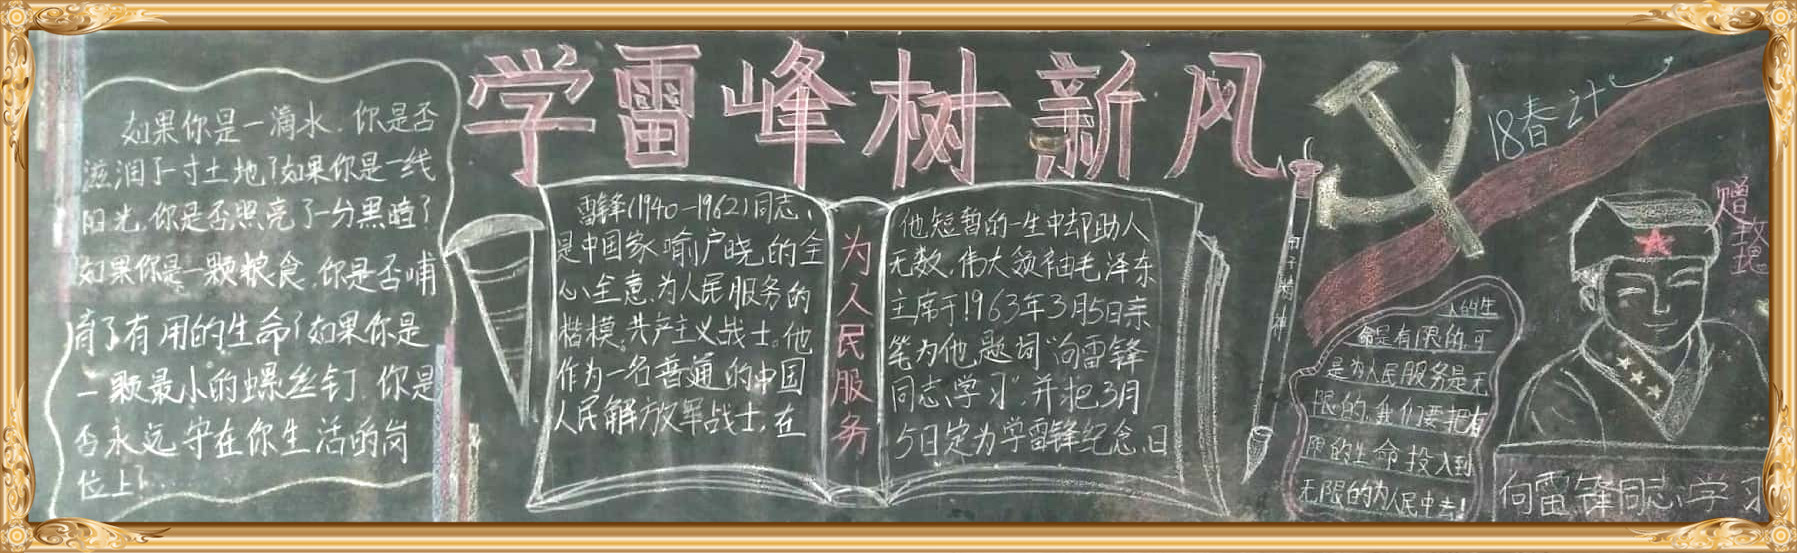 学雷峰树新风
如果你是一滴水.你是否
滋润了一寸土地?如果你是一线
阳光,你是否照亮了一分黑暗?
如果你是一颗粮食,你是否哺
育了有用的生命?如果你是
一颗最小的螺丝钉.你是
否永远守在你生活的岗
位上?...
雷锋(1940-1962)同志,
是中国家喻户晓的全
心全意为人民服务的
楷模,共产主义战士。他
作为一名普通的中国
人民解放军战士,在
为人民服务
他短暂的一生中却助人
无数,伟大领袖毛泽东
主席于1963年3月5日亲
笔为他题词“向雷锋
同志学习”,并把3月
5日定为学雷锋纪念日
钉子精神
18春计
人的生
命是有限的,可
是为人民服务是无
限的,我们要把有
限的生命投入到
无限的为人民中去!
向雷锋同志学习